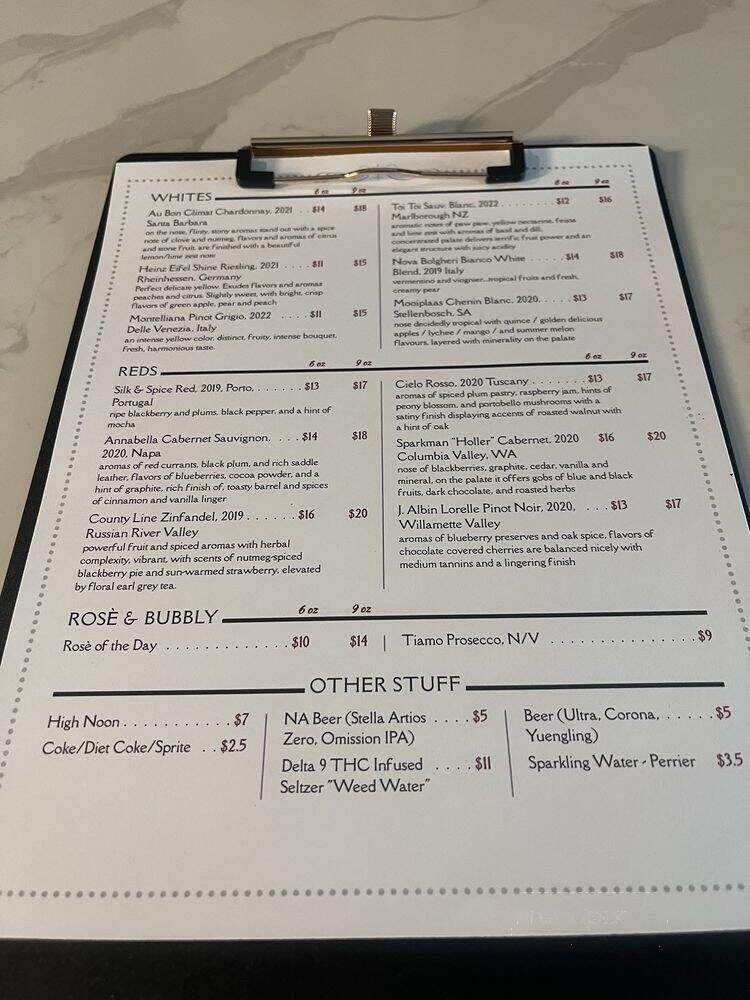 WHITES
6 oz 9 oz
Au Bon Climat Chardonnay, 2021 . . $14 $18
Santa Barbara
on the nose, flinty, stony aromas stand out with a spice
note of clove and nutmeg, flavors and aromas of citrus
and stone fruit, are finished with a beautiful
lemon/lime zest note
Heinz Eifel Shine Riesling, 2021 . . . . $11 $15
Rheinhessen, Germany
Perfect delicate yellow. Exudes flavors and aromas
peaches and citrus. Slightly sweet, with bright, crisp
flavors of green apple, pear and peach
Montelliana Pinot Grigio, 2022 . . . . $11 $15
Delle Venezia, Italy
an intense yellow color, distinct, fruity, intense bouquet,
fresh, harmonious taste.
6 oz 9 oz
Toi Toi Sauv. Blanc, 2022 . . . . . . . . $12 $16
Marlborough NZ
aromatic notes of paw paw, yellow nectarine, feijoa
and lime zest with aromas of basil and dill,
concentrated palate delivers terrific fruit power and an
elegant structure with juicy acidity
Nova Bolgheri Bianco White . . . . . $14 $18
Blend, 2019 Italy
vermentino and viognier...tropical fruits and fresh,
creamy pear
Mooiplaas Chenin Blanc, 2020. . . . . $13 $17
Stellenbosch, SA
nose decidedly tropical with quince / golden delicious
apples / lychee / mango / and summer melon
flavours, layered with minerality on the palate
REDS
6 oz 9 oz
Silk & Spice Red, 2019, Porto, . . . . . . $13 $17
Portugal
ripe blackberry and plums, black pepper, and a hint of
mocha
Annabella Cabernet Sauvignon, . . . $14 $18
2020, Napa
aromas of red currants, black plum, and rich saddle
leather, flavors of blueberries, cocoa powder, and a
hint of graphite, rich finish of, toasty barrel and spices
of cinnamon and vanilla linger
County Line Zinfandel, 2019 . . . . . . $16 $20
Russian River Valley
powerful fruit and spiced aromas with herbal
complexity, vibrant, with scents of nutmeg-spiced
blackberry pie and sun-warmed strawberry, elevated
by floral earl grey tea.
6 oz 9 oz
Cielo Rosso, 2020 Tuscany . . . . . . . $13 $17
aromas of spiced plum pastry, raspberry jam, hints of
peony blossom, and portobello mushrooms with a
satiny finish displaying accents of roasted walnut with
a hint of oak
Sparkman "Holler" Cabernet, 2020 $16 $20
Columbia Valley, WA
nose of blackberries, graphite, cedar, vanilla and
mineral, on the palate it offers gobs of blue and black
fruits, dark chocolate, and roasted herbs
J. Albin Lorelle Pinot Noir, 2020, . . . $13 $17
Willamette Valley
aromas of blueberry preserves and oak spice, flavors of
chocolate covered cherries are balanced nicely with
medium tannins and a lingering finish
ROSÈ & BUBBLY
6 oz 9 oz
Rosè of the Day . . . . . . . . . . . . . $10 $14
Tiamo Prosecco, N/V . . . . . . . . . . . . . . . . $9
OTHER STUFF
High Noon . . . . . . . . . . . $7
Coke/Diet Coke/Sprite . . $2.5
NA Beer (Stella Artios . . . . $5
Zero, Omission IPA)
Delta 9 THC Infused . . . . $11
Seltzer "Weed Water"
Beer (Ultra, Corona, . . . . . $5
Yuengling)
Sparkling Water - Perrier $3.5